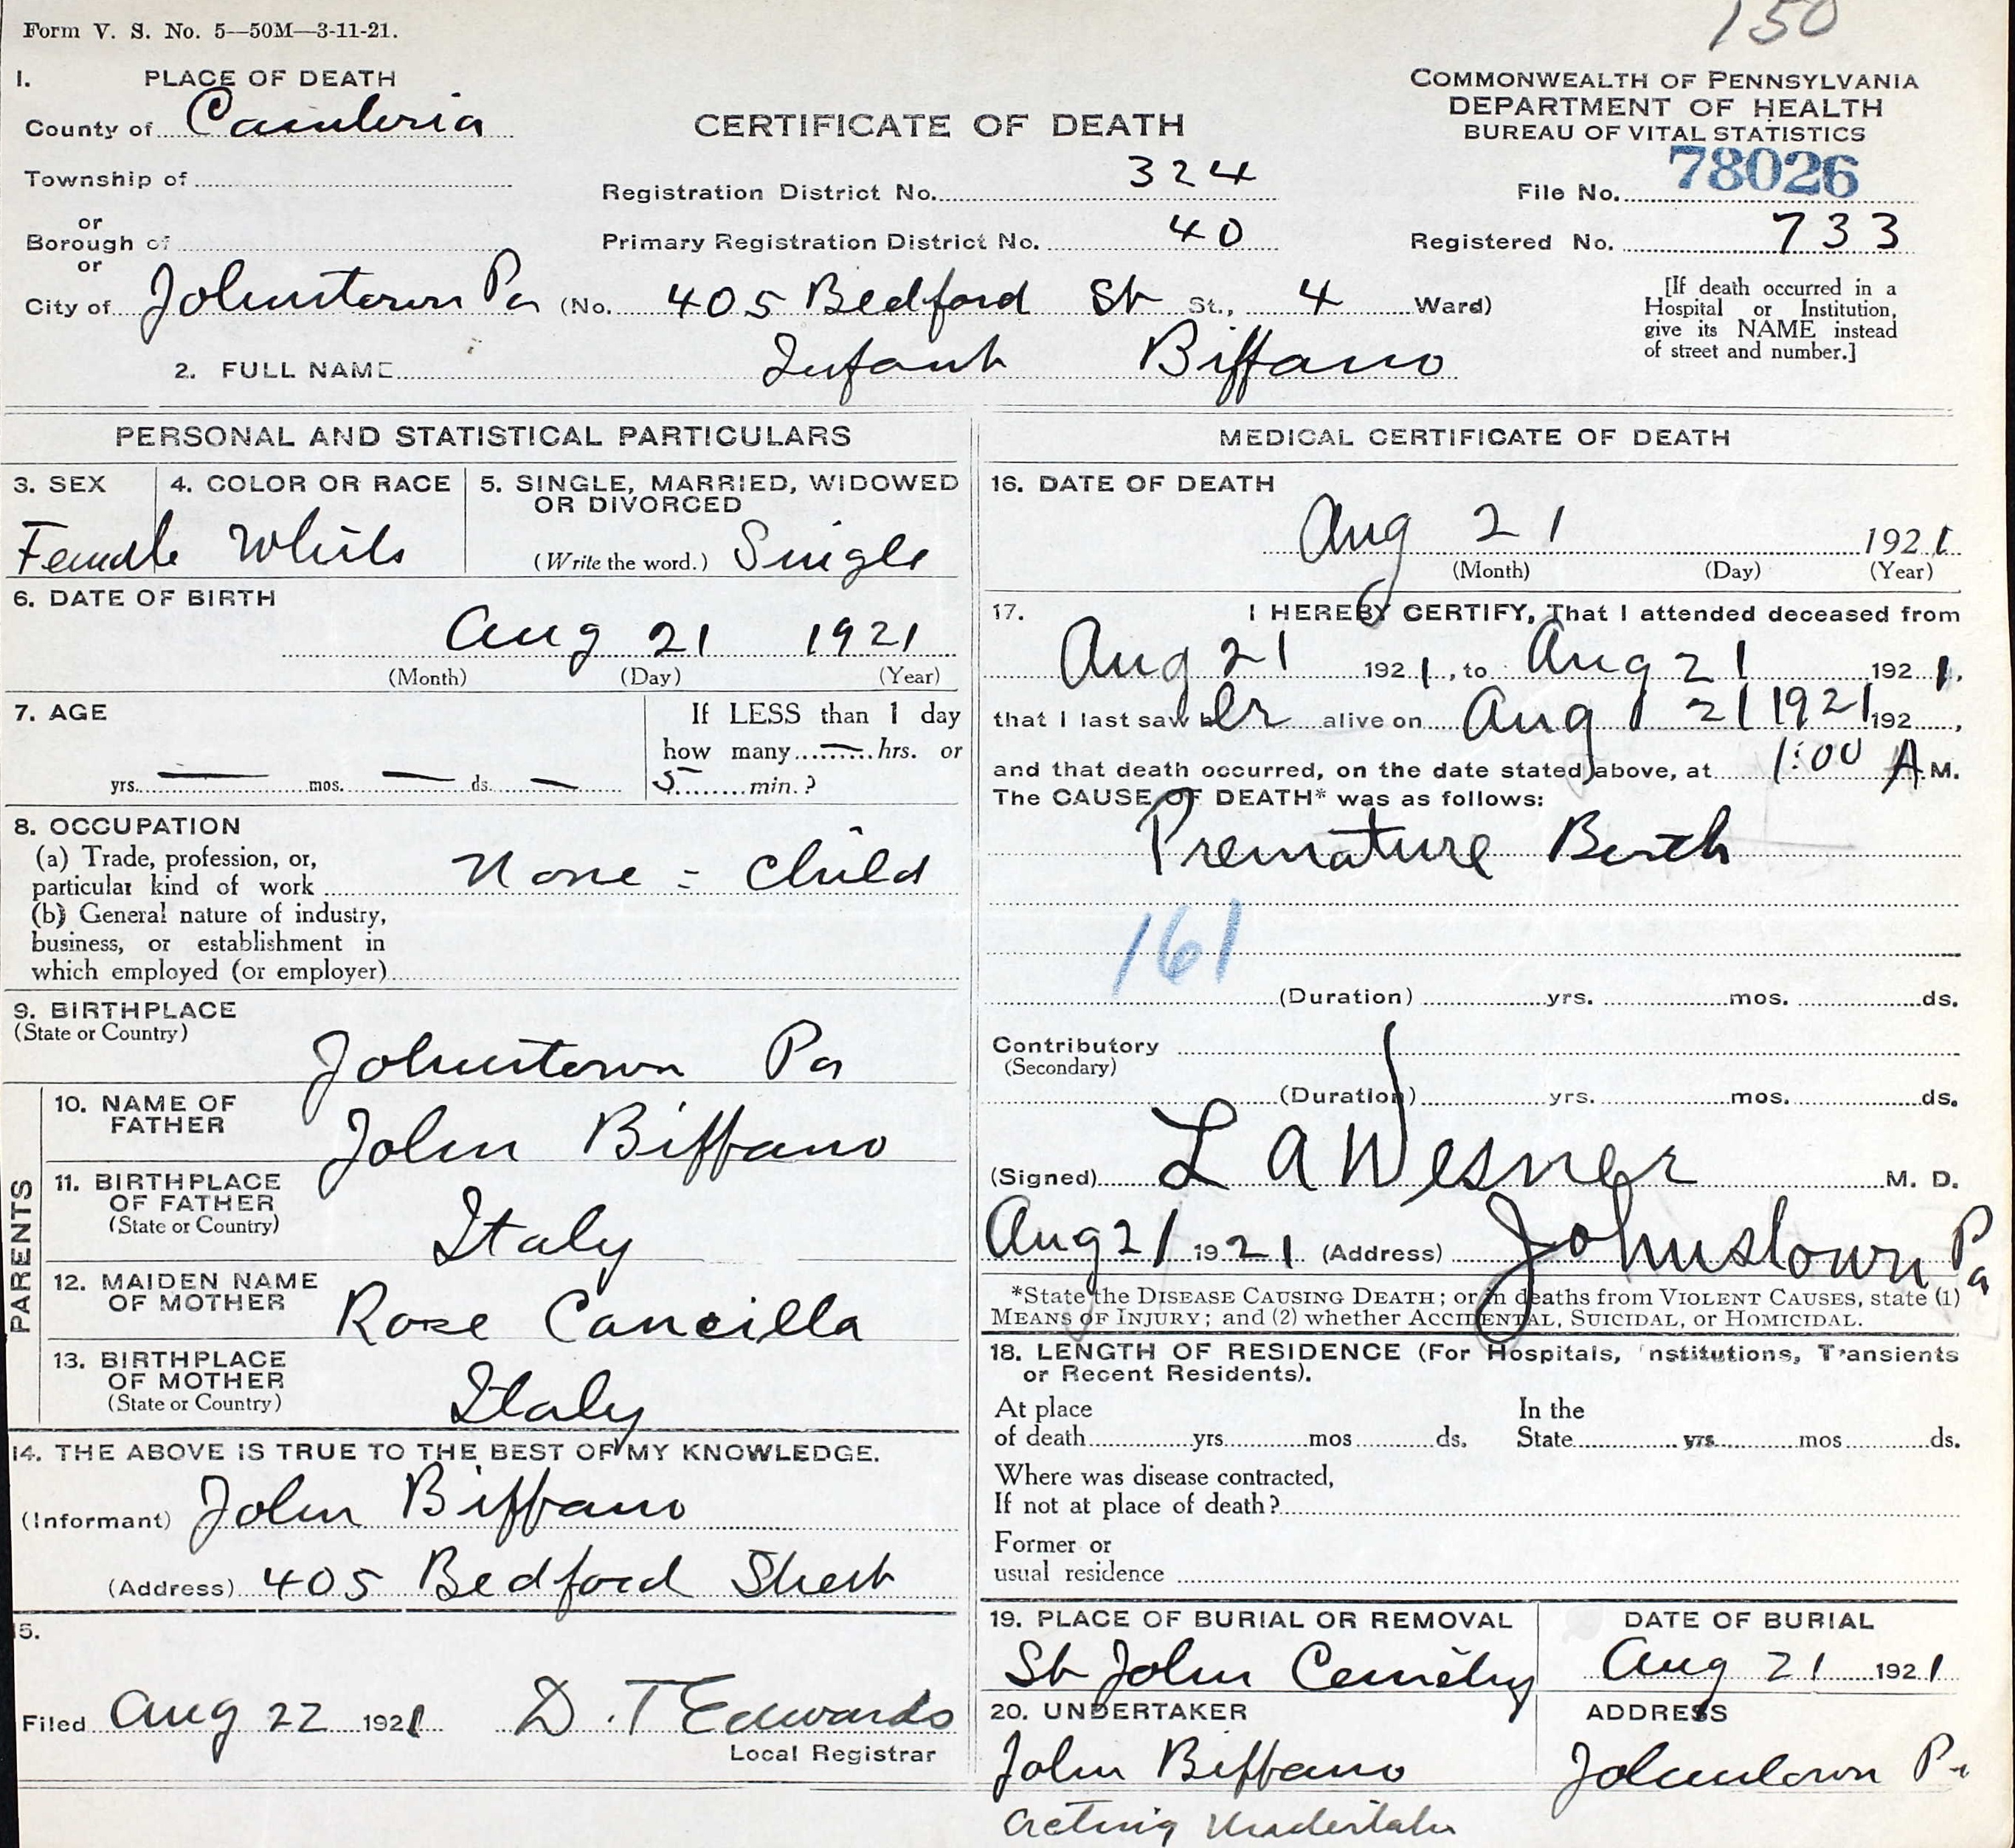 150
Form V. S. No. 5—50M—3-11-21.
1. PLACE OF DEATH
County of Cambria
Township of
or
Borough of
or
City of Johnstown Pa (No. 405 Bedford St St., 4 Ward)
CERTIFICATE OF DEATH
Registration District No. 324
Primary Registration District No. 40
COMMONWEALTH OF PENNSYLVANIA
DEPARTMENT OF HEALTH
BUREAU OF VITAL STATISTICS
File No. 78026
Registered No. 733
[If death occurred in a
Hospital or Institution,
give its NAME instead
of street and number.]
2. FULL NAME Infant Biffano
PERSONAL AND STATISTICAL PARTICULARS
3. SEX
Female
4. COLOR OR RACE
White
5. SINGLE, MARRIED, WIDOWED
OR DIVORCED
(Write the word.) Single
6. DATE OF BIRTH
Aug 21 1921
(Month) (Day) (Year)
7. AGE
yrs. — mos. — ds. —
If LESS than 1 day
how many — hrs. or
5 min.?
8. OCCUPATION
(a) Trade, profession, or,
particular kind of work None - Child
(b) General nature of industry,
business, or establishment in
which employed (or employer)
9. BIRTHPLACE
(State or Country)
Johnstown Pa
PARENTS
10. NAME OF
FATHER
John Biffano
11. BIRTHPLACE
OF FATHER
(State or Country)
Italy
12. MAIDEN NAME
OF MOTHER
Rose Cancilla
13. BIRTHPLACE
OF MOTHER
(State or Country)
Italy
14. THE ABOVE IS TRUE TO THE BEST OF MY KNOWLEDGE.
(Informant) John Biffano
(Address) 405 Bedford Street
15.
Filed Aug 22 1921 D. T Edwards
Local Registrar
MEDICAL CERTIFICATE OF DEATH
16. DATE OF DEATH
Aug 21 1921
(Month) (Day) (Year)
17. I HEREBY CERTIFY, That I attended deceased from
Aug 21 1921, to Aug 21 1921,
that I last saw her alive on Aug 21 1921 192 ,
and that death occurred, on the date stated above, at 1:00 A M.
The CAUSE OF DEATH* was as follows:
Premature Birth
161
(Duration) yrs. mos. ds.
Contributory
(Secondary)
(Duration) yrs. mos. ds.
(Signed) L A Wesner M. D.
Aug 21 1921 (Address) Johnstown Pa
*State the DISEASE CAUSING DEATH; or in deaths from VIOLENT CAUSES, state (1)
MEANS OF INJURY; and (2) whether ACCIDENTAL, SUICIDAL, or HOMICIDAL.
18. LENGTH OF RESIDENCE (For Hospitals, Institutions, Transients
or Recent Residents).
At place
of death yrs mos ds.
In the
State yrs mos ds.
Where was disease contracted,
If not at place of death?
Former or
usual residence
19. PLACE OF BURIAL OR REMOVAL
St John Cemetery
DATE OF BURIAL
Aug 21 1921
20. UNDERTAKER
John Biffano
acting Undertaker
ADDRESS
Johnstown Pa